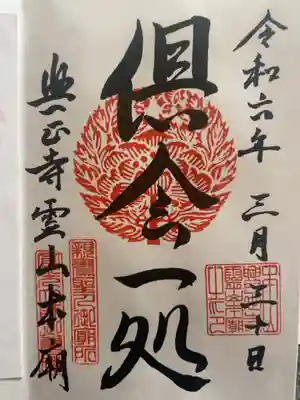 令和六年 三月三十日
倶会一処
興正寺霊山本廟